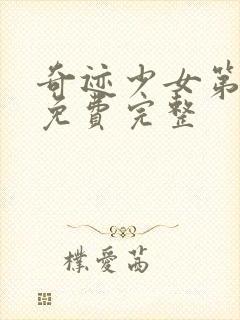 奇迹少女第
免費完整
樸愛茜